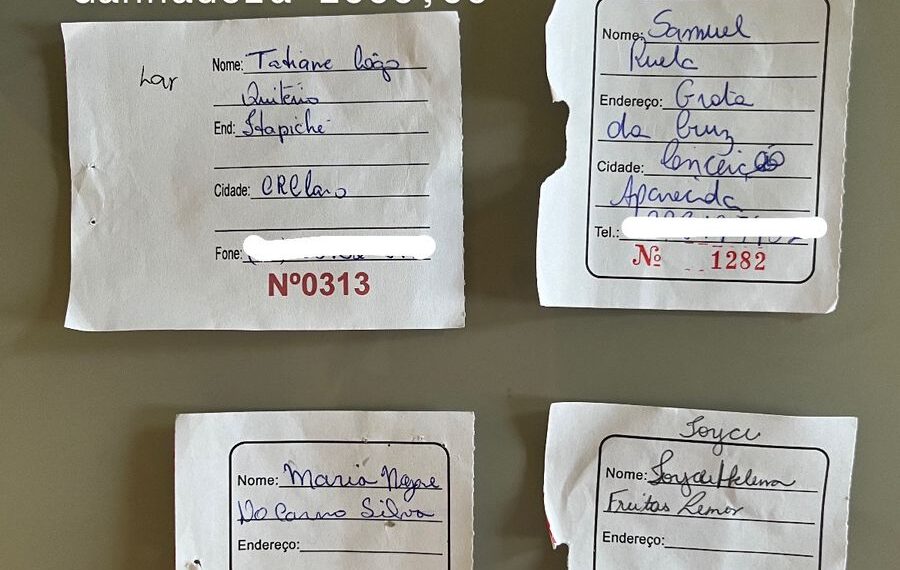 Lar
Nome: Tatiane Côgo
Quitério
End: Itapiché
Cidade: CRClaro
Fone:
Nº0313
Nome: Samuel
Ruela
Endereço: Grota
da Cruz
Cidade: Conceição
Aparecida
Tel.:
Nº 1282
Nome: Maria Nayre
Do Carmo Silva
Endereço:
Joyce
Nome: Joyce Helena
Freitas Lemos
Endereço: